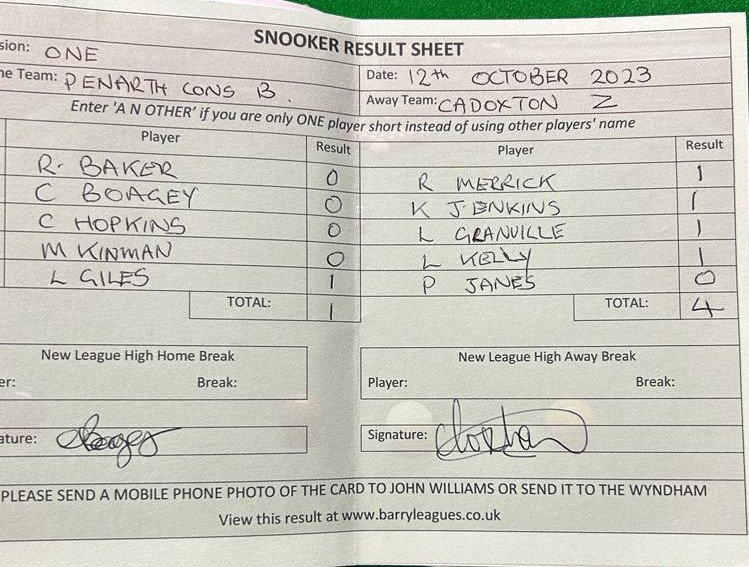 SNOOKER RESULT SHEET
sion: ONE
ne Team: PENARTH CONS B.
Date: 12th OCTOBER 2023
Away Team: CADOXTON Z
Enter 'A N OTHER' if you are only ONE player short instead of using other players' name
Player Result Player Result
R. BAKER 0 R MERRICK 1
C BOAGEY 0 K JENKINS 1
C HOPKINS 0 L GRANVILLE 1
M KINMAN 0 L KELLY 1
L GILES 1 P JANES 0
TOTAL: 1 TOTAL: 4
New League High Home Break New League High Away Break
er: Break: Player: Break:
ature: Signature:
PLEASE SEND A MOBILE PHONE PHOTO OF THE CARD TO JOHN WILLIAMS OR SEND IT TO THE WYNDHAM
View this result at www.barryleagues.co.uk